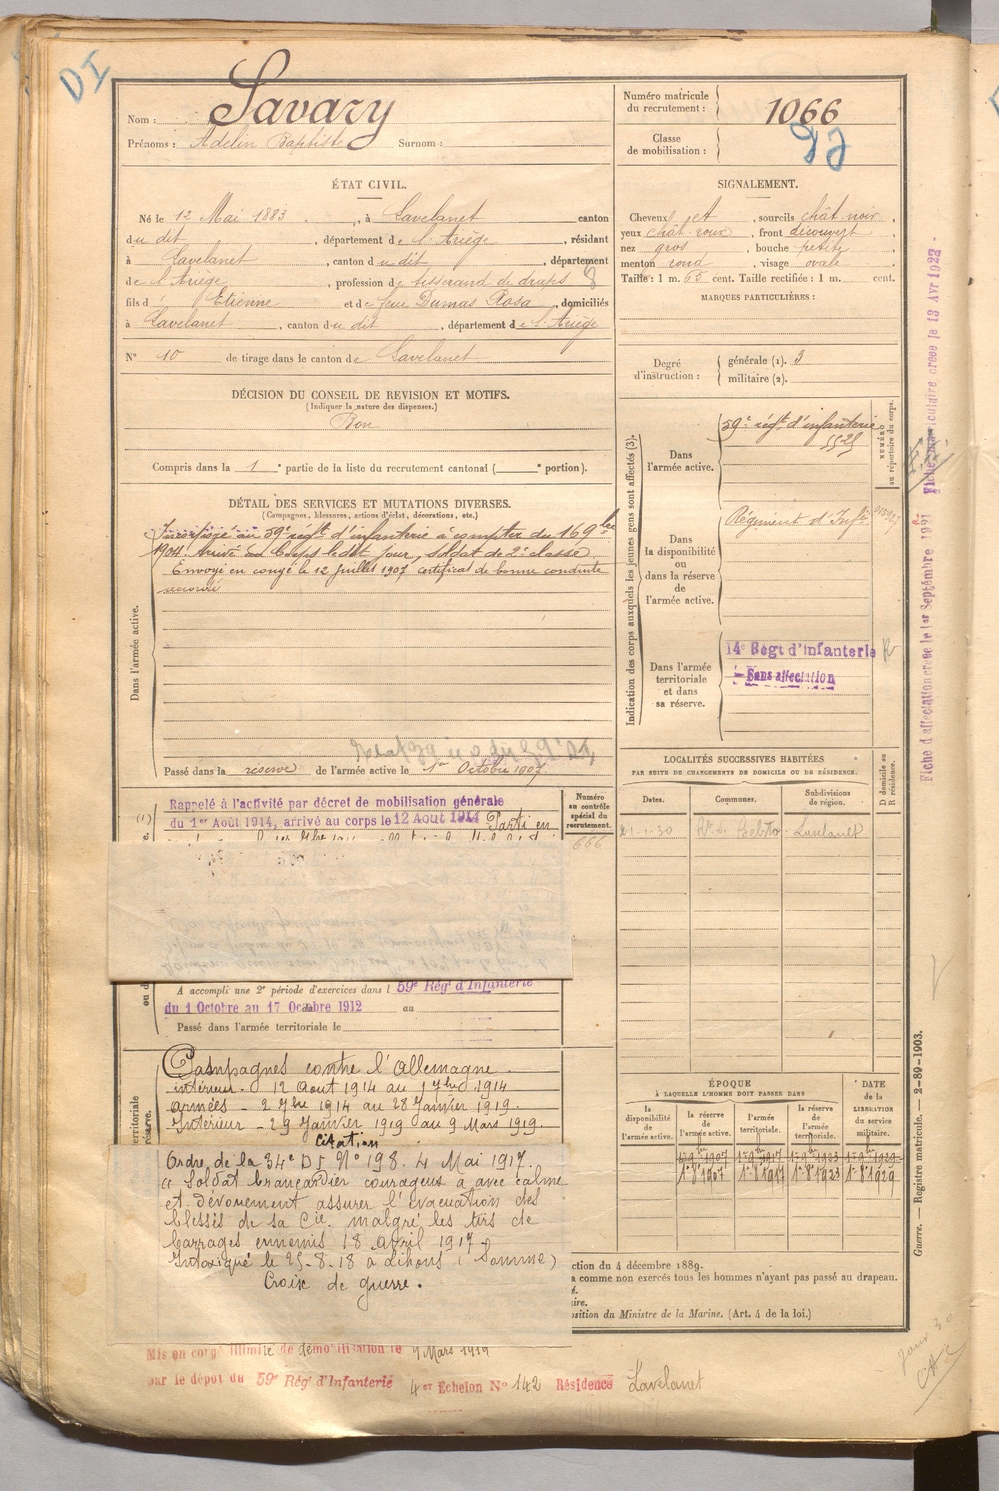 DI
Nom : Savary
Prénoms : Adelin Baptiste Surnom :
Numéro matricule du recrutement : 1066
Classe de mobilisation :
ÉTAT CIVIL.
Né le 12 Mai 1883, à Lavelanet canton
du dit, département de l'Ariège, résidant
à Lavelanet, canton du dit, département
de l'Ariège, profession de tisserand de draps 8
fils d' Etienne et de feue Dumas Rosa, domiciliés
à Lavelanet, canton du dit, département de l'Ariège
N° 10 de tirage dans le canton de Lavelanet
SIGNALEMENT.
Cheveux et, sourcils chât-noir,
yeux chât. roux, front découvert
nez gros, bouche petite
menton rond, visage ovale
Taille : 1 m. 65 cent. Taille rectifiée : 1 m. cent.
MARQUES PARTICULIÈRES :
Degré d'instruction : générale (1). 3
militaire (2).
DÉCISION DU CONSEIL DE REVISION ET MOTIFS.
(Indiquer la nature des dispenses.)
Bon
Compris dans la 1e partie de la liste du recrutement cantonal ( e portion).
DÉTAIL DES SERVICES ET MUTATIONS DIVERSES.
(Campagnes, blessures, actions d'éclat, décorations, etc.)
Dans l'armée active.
Incorporé au 59e régt d'infanterie à compter du 16 9bre
1904. Arrivé au Corps le dit jour, soldat de 2e classe.
Envoyé en congé le 12 Juillet 1907 certificat de bonne conduite
accordé
Passé dans la réserve de l'armée active le 1er Octobre 1907.
Indication des corps auxquels les jeunes gens sont affectés (3).
NUMÉRO au répertoire du corps.
Dans l'armée active.
59e régt d'infanterie
Dans la disponibilité ou dans la réserve de l'armée active.
Régiment d'Infie
Dans l'armée territoriale et dans sa réserve.
14e Régt d'Infanterie
Sans affectation
LOCALITÉS SUCCESSIVES HABITÉES
PAR SUITE DE CHANGEMENTS DE DOMICILE OU DE RÉSIDENCE.
Dates. Communes. Subdivisions de région. D domicile ou R résidence.
Lavelanet
Rappelé à l'activité par décret de mobilisation générale
du 1er Août 1914, arrivé au corps le 12 Aout 1914 Parti en
Numéro au contrôle spécial du recrutement.
666
A accompli une 2e période d'exercices dans l 59e Rég' d'Infanterie
du 1 Octobre au 17 Octobre 1912 au
Passé dans l'armée territoriale le
Campagnes contre l'Allemagne
intérieur - 12 Aout 1914 au 1 7bre 1914
armées - 2 7bre 1914 au 28 Janvier 1919.
Intérieur - 29 Janvier 1919 au 9 Mars 1919.
Citation
Ordre de la 34e DI N° 198. 4 Mai 1917.
"Soldat brancardier courageux a avec calme
et dévouement assurer l'évacuation des
blessés de sa Cie. malgré les tirs de
barrages ennemis 18 avril 1917"
Intoxiqué le 25-8-18 à Lihons (Somme)
Croix de guerre.
ÉPOQUE
À LAQUELLE L'HOMME DOIT PASSER DANS
la disponibilité de l'armée active. la réserve de l'armée active. l'armée territoriale. la réserve de l'armée territoriale. DATE de la LIBÉRATION du service militaire.
1r 8' 1907 1r 8' 1917 1r 8' 1923 1r 8' 1929
ction du 4 décembre 1889.
a comme non exercés tous les hommes n'ayant pas passé au drapeau.
sition du Ministre de la Marine. (Art. 4 de la loi.)
Mis en congé illimité de démobilisation le 9 Mars 1919
par le dépôt du 59e Rég' d'Infanterie 4er Echelon N° 142 Résidence Lavelanet
Fiche d'affectation créée le 1er Septembre 1921 Fiche matriculaire créée le 13 Avr 1922
Guerre. — Registre matricule. — 2-89-1903.